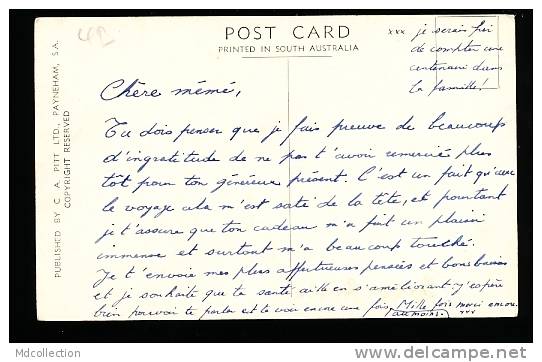 POST CARD
PRINTED IN SOUTH AUSTRALIA
PUBLISHED BY C. A. PITT LTD., PAYNEHAM, S.A.
COPYRIGHT RESERVED
xxx je serais fier
de compter une
centenaire dans
la famille!
Chère mémé,
Tu dois penser que je fais preuve de beaucoup
d'ingratitude de ne pas t'avoir remercié plus
tôt pour ton généreux présent. C'est un fait qu'avec
le voyage cela m'est sorti de la tête, et pourtant
je t'assure que ton cadeau m'a fait un plaisir
immense et surtout m'a beaucoup touché.
Je t'envoie mes plus affectueuses pensées et bons baisers
et je souhaite que ta santé aille en s'améliorant. J'espère
bien pouvoir te parler et te voir encore une fois, Mille fois merci encore.
au moins. xxx
Mdcollection
www.delcampe.net